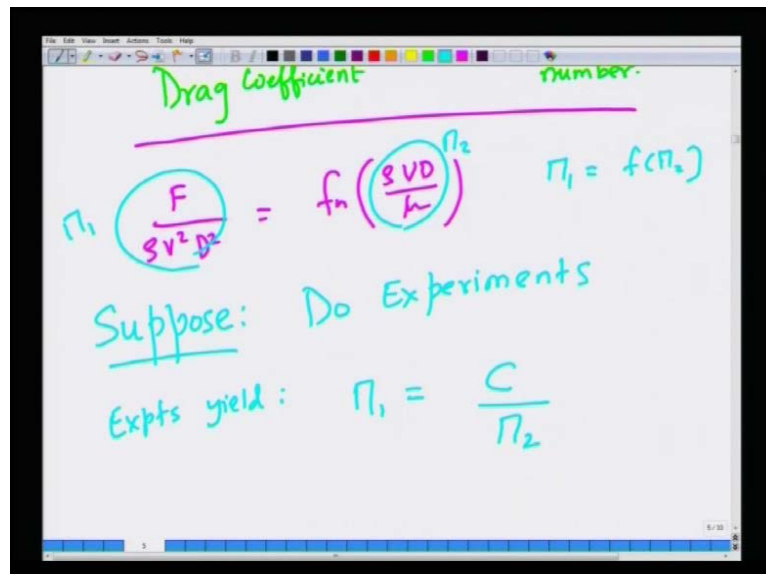 File Edit View Insert Actions Tools Help
Drag Coefficient number.
Π₁ F/(ρV²D²) = fn(ρVD/μ) Π₂ Π₁ = f(Π₂)
Suppose: Do Experiments
Expts yield: Π₁ = C/Π₂
5/10
3